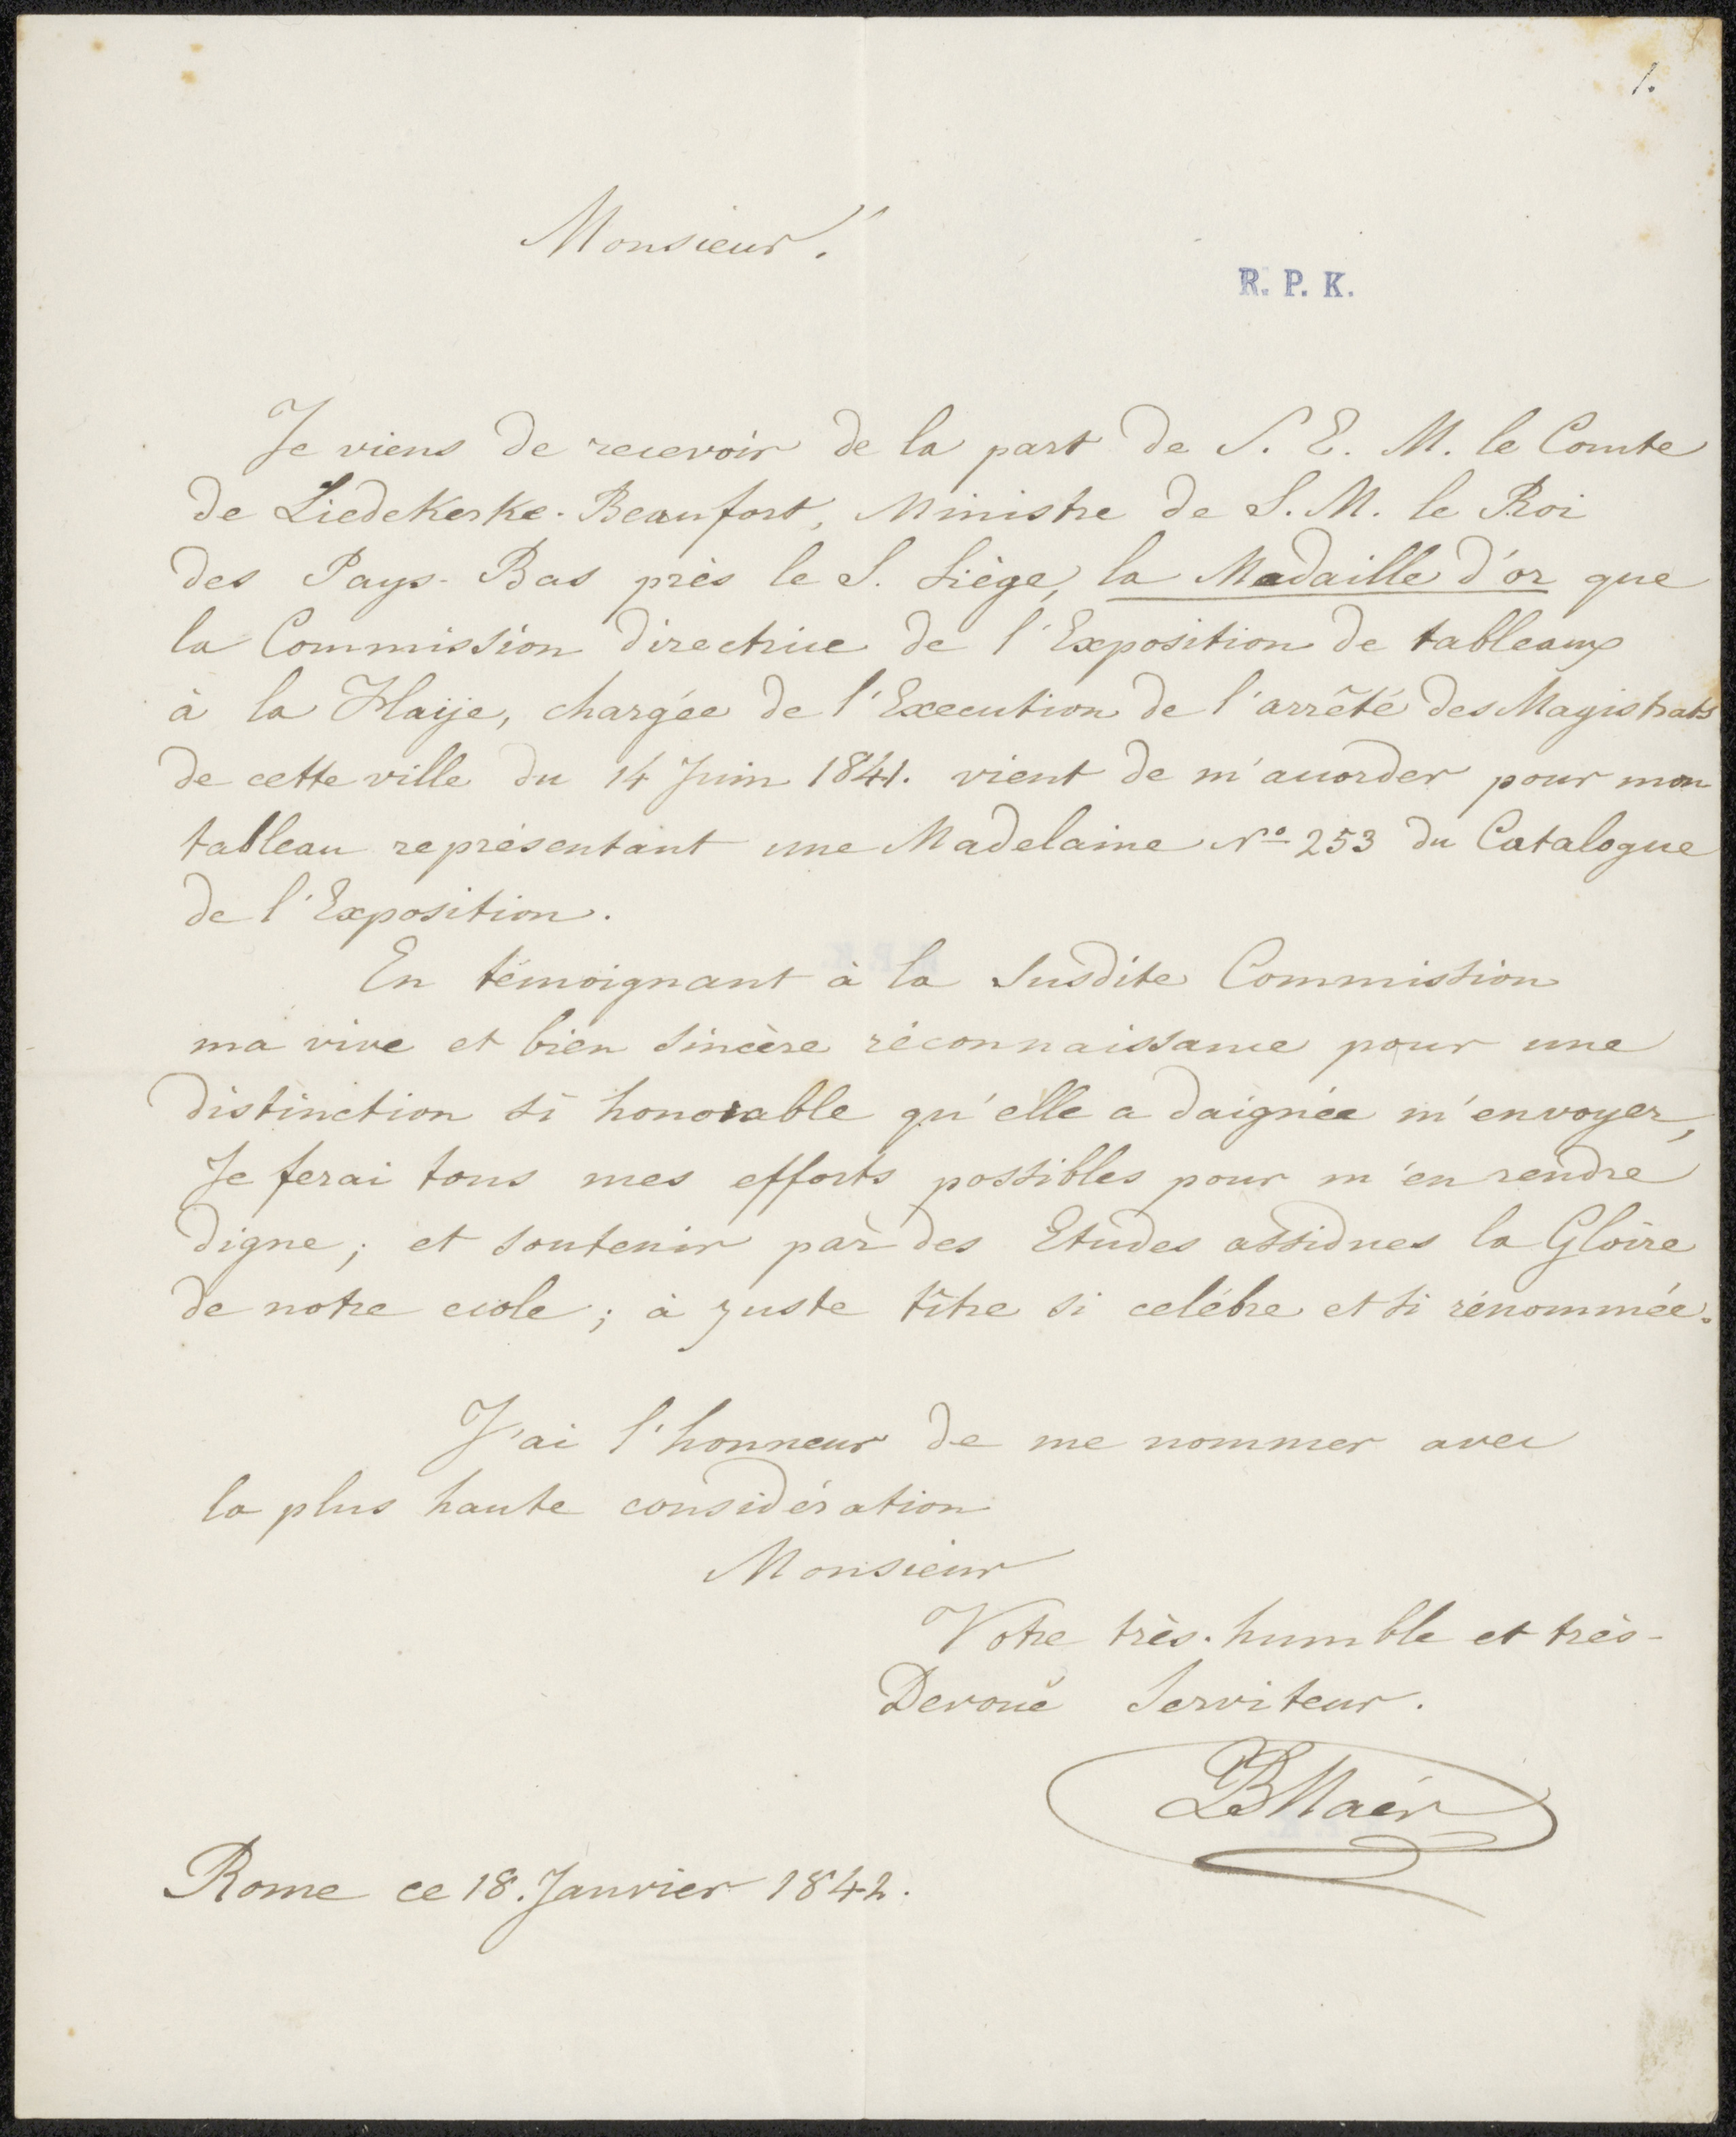 1.
Monsieur!
R. P. K.
Je viens de recevoir de la part de S. E. M. le Comte
de Liedekerke-Beaufort, Ministre de S. M. le Roi
des Pays-Bas près le S. Siège, la Medaille d'or que
la Commission directrice de l'Exposition de tableaux
à la Haije, chargée de l'Execution de l'arrêté des Magistrats
de cette ville du 14 Juin 1841. vient de m'accorder pour mon
tableau représentant une Madelaine No 253 du Catalogue
de l'Exposition.
En témoignant à la Susdite Commission
ma vive et bien sincère réconnaissance pour une
distinction si honorable qu'elle a daignée m'envoyer,
Je ferai tous mes efforts possibles pour m'en rendre
digne; et soutenir par des Etudes assidues la Gloire
de notre ecole; à juste titre si celébre et si rénommée.
J'ai l'honneur de me nommer avec
la plus haute considération
Monsieur
Votre très-humble et très-
Devoué Serviteur.
Rome ce 18. Janvier 1842.